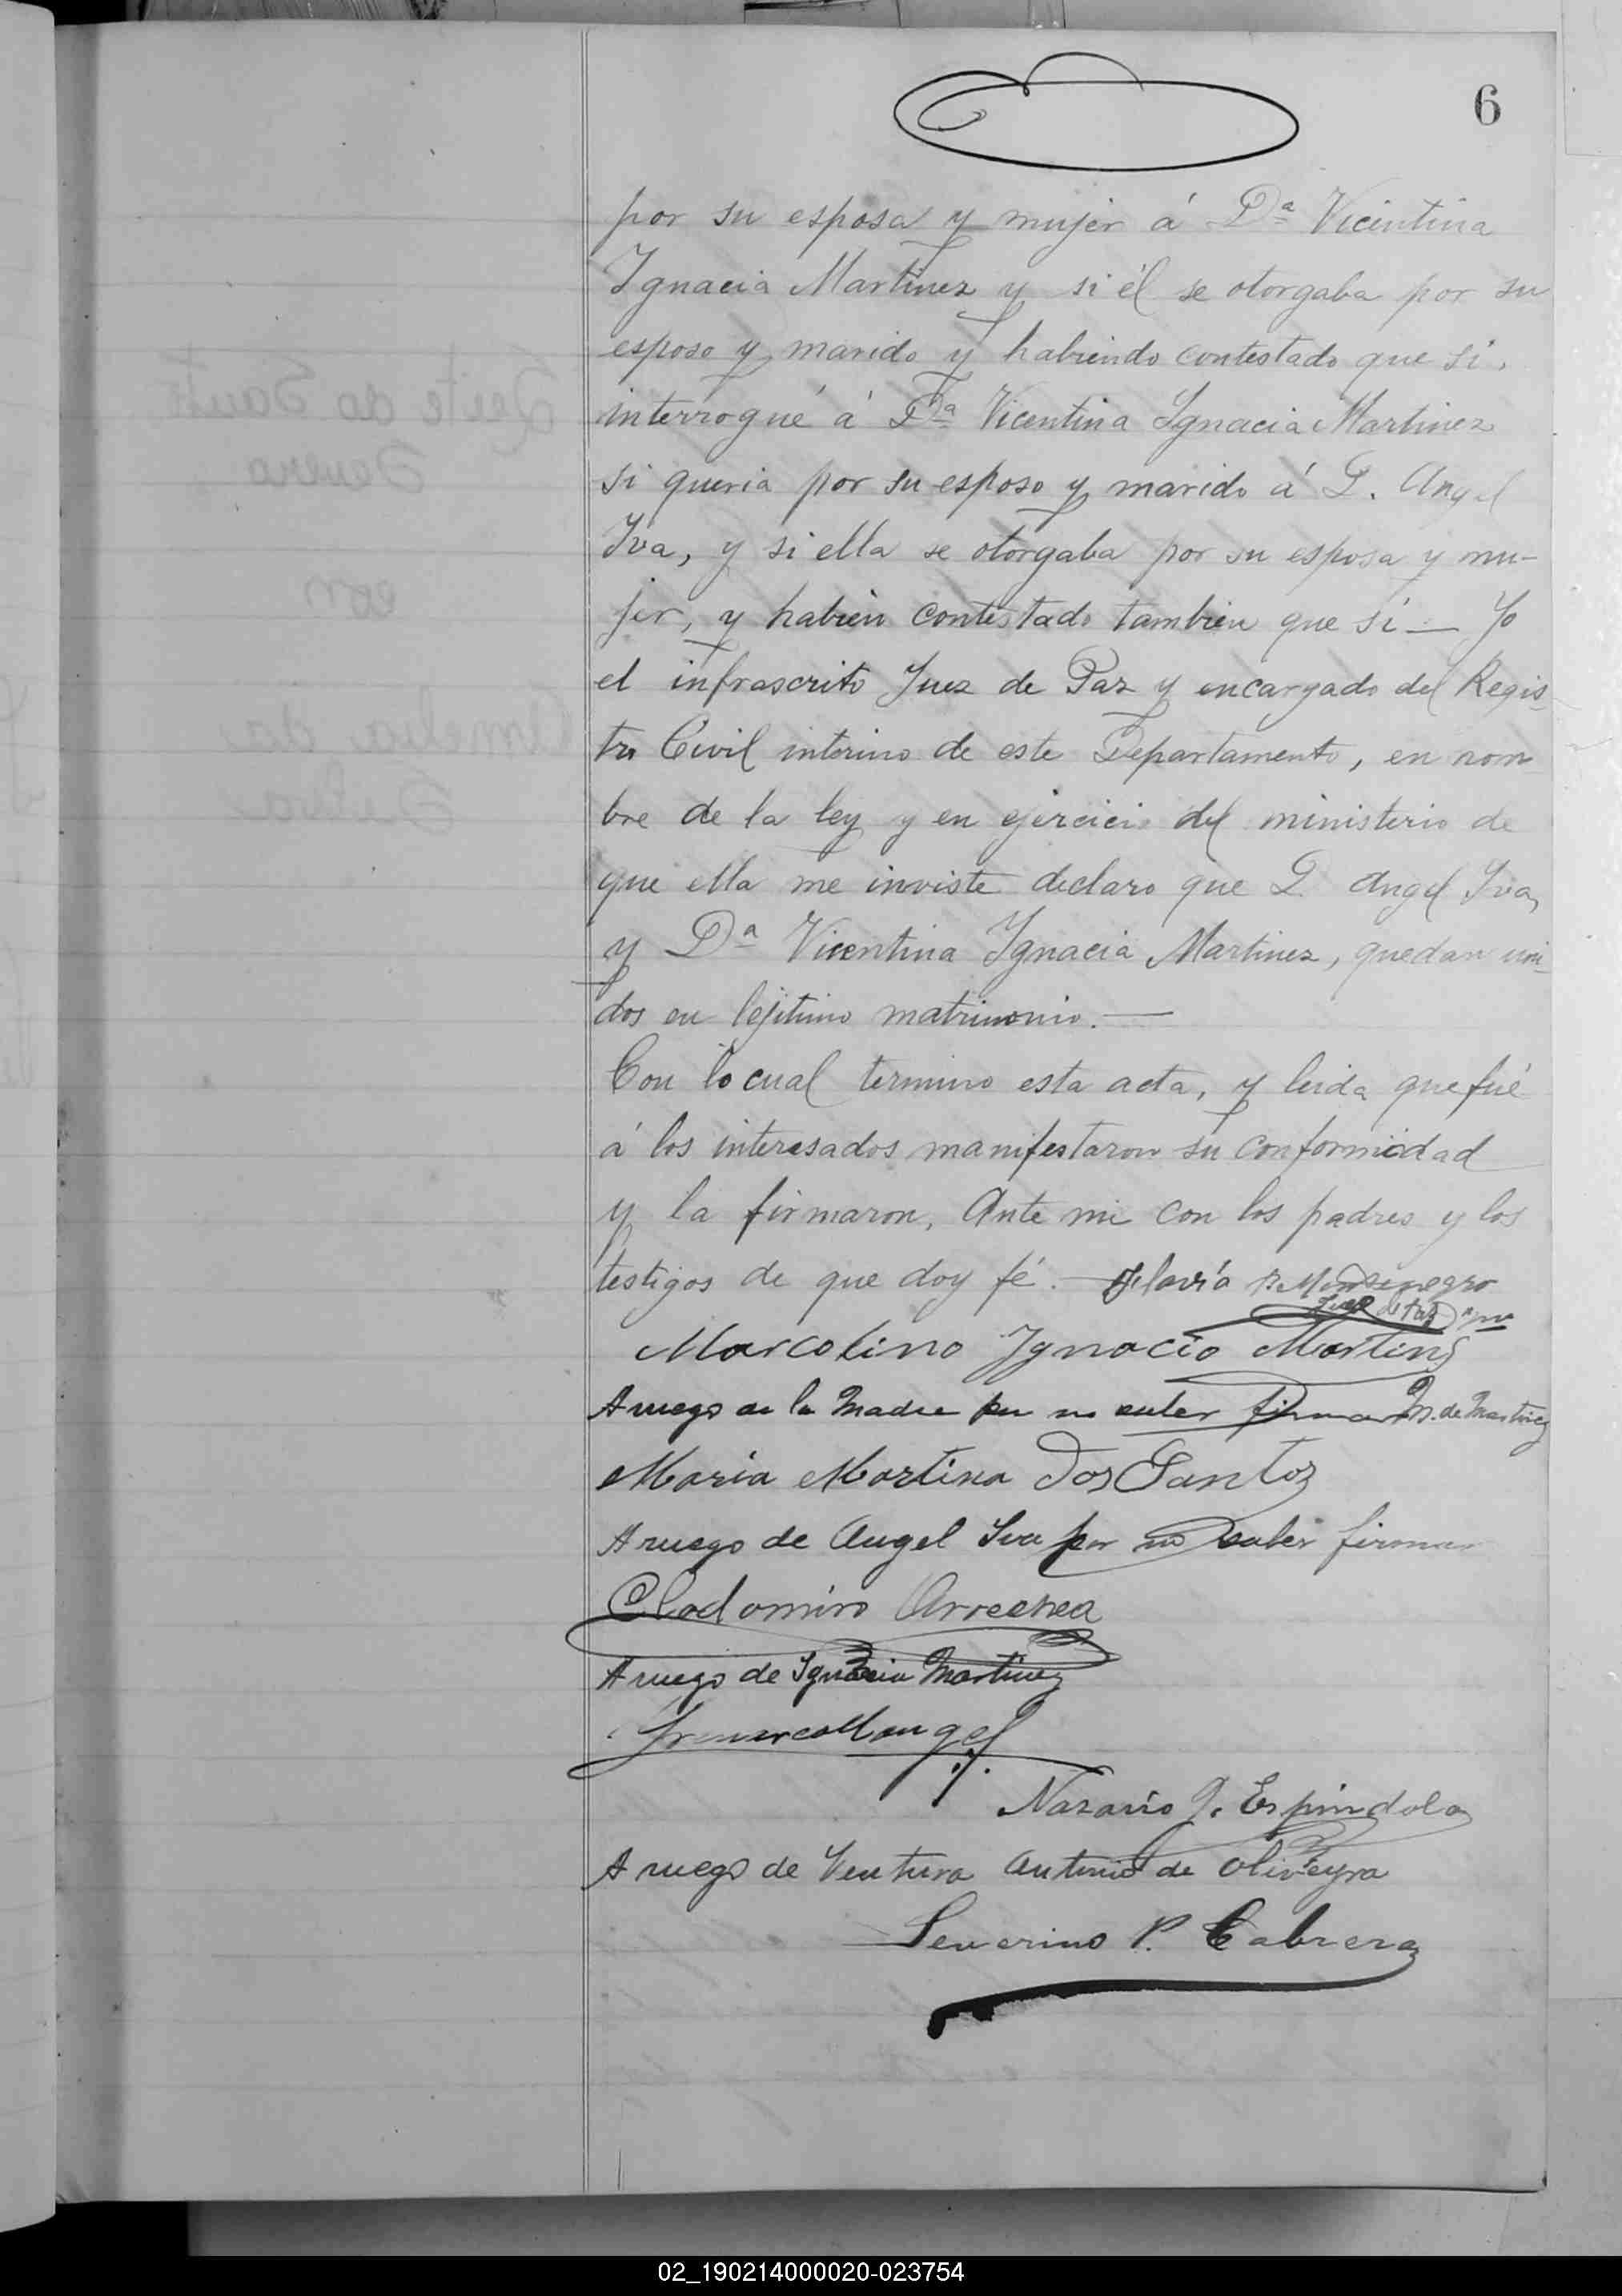 6
por su esposa y mujer á Dª Vicintina
Ignacia Martinez y si él se otorgaba por su
esposo y marido y habiendo contestado que si,
interrogué á Dª Vicentina Ignacia Martinez
si queria por su esposo y marido á D. Angel
Iva, y si ella se otorgaba por su esposa y mu-
jer, y habien contestado tambien que si — Yo
el infrascrito Juez de Paz y encargado del Regis-
tro Civil interino de este Departamento, en nom
bre de la ley y en ejercicio del ministerio de
que ella me inviste declaro que D. Angel Iva,
y Dª Vicentina Ignacia Martinez, quedan uni-
dos en lejitimo matrimonio. —
Con lo cual termino esta acta, y leida que fué
á los interesados manifestaron su conformidad
y la firmaron, Ante mi con los padres y los
testigos de que doy fé. — Flavio Montenegro
Juez de Paz
Marcolino Ignacio Martins
A ruego de la Madre por no saber firmar M. de Martinez
Maria Martina Dos Santos
A ruego de Angel Iva por no saber firmar
Clodomiro Arrechea
A ruego de Ignacia Martinez
Nazario Espindola
A ruego de Ventura Antonio de Oliveyra
Severino P. Cabrera
Leite do Santo
con
Amelia da
Silva
02_190214000020-023754